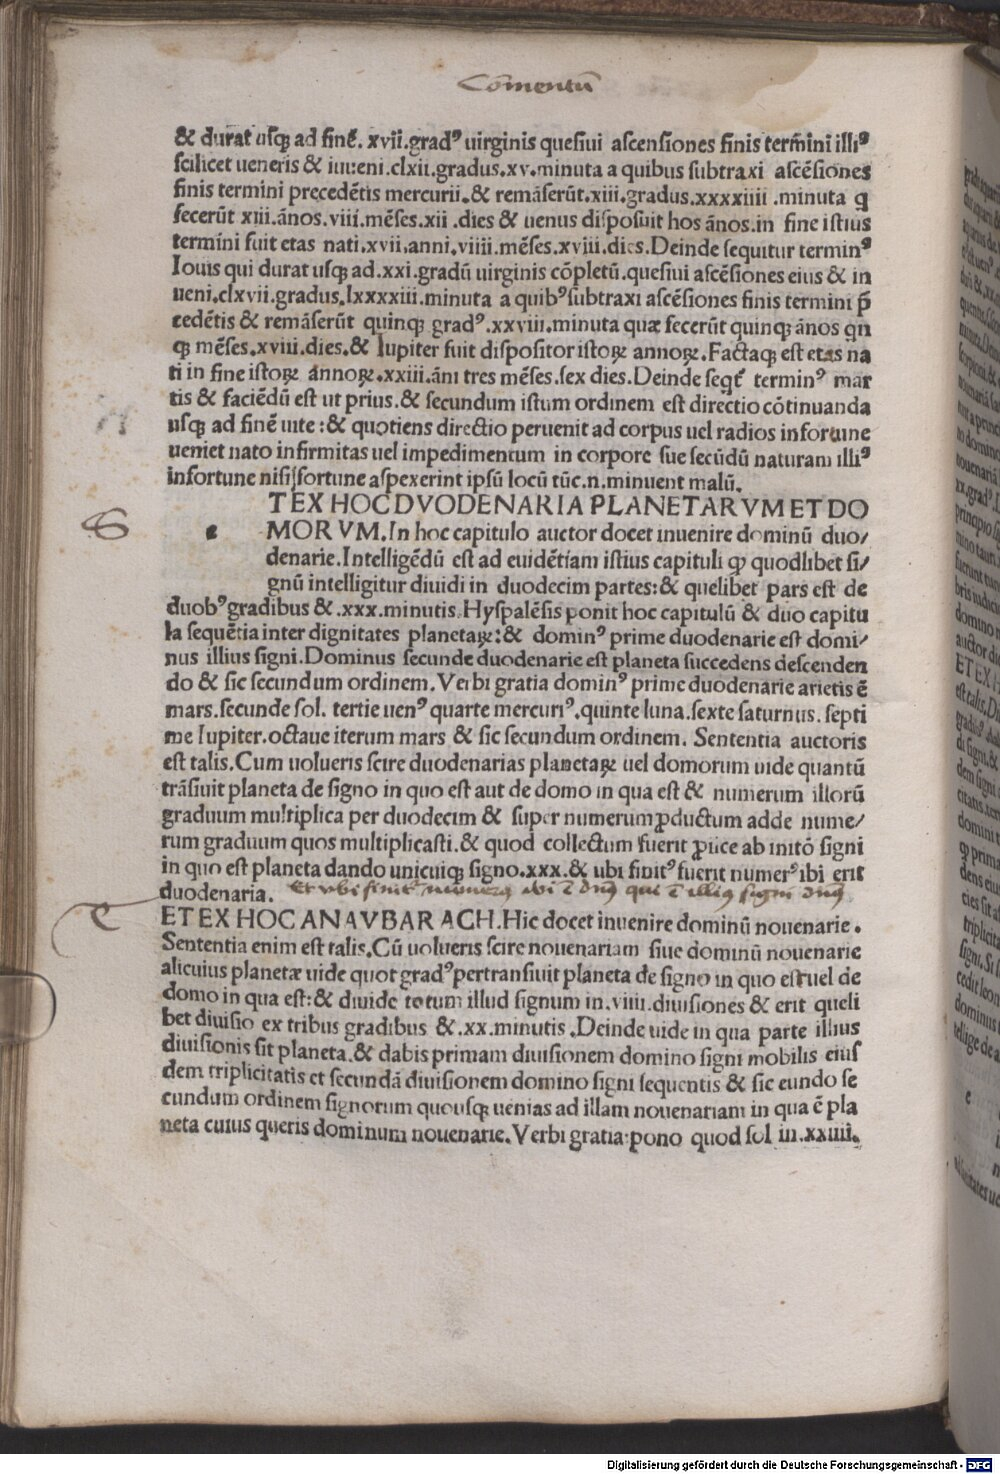 Cōmentū
& durat usq; ad finē. xvii.gradꝰ uirginis quesiui ascensiones finis termini illiꝰ
scilicet ueneris & inueni.clxii.gradus.xv.minuta a quibus subtraxi ascēsiones
finis termini precedētis mercurii.& remāserūt.xiii.gradus.xxxxiiii .minuta q
fecerūt xiii.ānos.viii.mēses.xii .dies & uenus disposuit hos ānos.in fine istius
termini fuit etas nati.xvii.anni.viiii.mēses.xviii.dies.Deinde sequitur terminꝰ
Iouis qui durat usq; ad.xxi.gradū uirginis cōpletū.quesiui ascēsiones eius & in
ueni.clxvii.gradus.lxxxxiii.minuta a quibꝰ subtraxi ascēsiones finis termini p̄
cedētis & remāserūt quinq; gradꝰ.xxviii.minuta quæ fecerūt quinq; ānos qn
q; mēses.xviii.dies.& Iupiter fuit dispositor istoꝝ annoꝝ.Factaq; est etas na
ti in fine istoꝝ annoꝝ.xxiii.āni tres mēses.sex dies.Deinde seqt̄ terminꝰ mar
tis & faciēdū est ut prius.& secundum istum ordinem est directio cōtinuanda
usq; ad finē uite :& quotiens directio peruenit ad corpus uel radios infortune
ueniet nato infirmitas uel impedimentum in corpore sue secūdū naturam illiꝰ
infortune nisi fortune aspexerint ipsū locū tūc.n.minuent malū.
TEX HOC DVODENARIA PLANETARVM ET DO
e MORVM.In hoc capitulo auctor docet inuenire dominū duo/
denarie.Intelligēdū est ad euidētiam istius capituli ꝙ quodlibet si/
gnū intelligitur diuidi in duodecim partes:& quelibet pars est de
duobꝰ gradibus &.xxx.minutis.Hyspalēsis ponit hoc capitulū & duo capitu
la sequētia inter dignitates planetaꝝ:& dominꝰ prime duodenarie est domi/
nus illius signi.Dominus secunde duodenarie est planeta succedens descenden
do & sic secundum ordinem.Verbi gratia dominꝰ prime duodenarie arietis ē
mars.secunde sol. tertie uenꝰ quarte mercuriꝰ.quinte luna.sexte saturnus. septi
me Iupiter.octaue iterum mars & sic secundum ordinem. Sententia auctoris
est talis.Cum uolueris scire duodenarias planetaꝝ uel domorum uide quantū
trāsiuit planeta de signo in quo est aut de domo in qua est & numerum illorū
graduum multiplica per duodecim & super numerum ꝓductum adde nume/
rum graduum quos multiplicasti.& quod collectum fuerit ꝓiice ab initō signi
in quo est planeta dando unicuiq; signo.xxx.& ubi finitꝰ fuerit numerꝰ ibi erit
duodenaria. Et ubi finit numerꝰ ibi ē dnꝰ qui ē illiꝰ signi dnꝰ
ET EX HOC ANAVBARACH.Hic docet inuenire dominū nouenarie.
Sententia enim est talis.Cū uolueris scire nouenariam siue dominū nouenarie
alicuius planetæ uide quot gradꝰ pertransiuit planeta de signo in quo est uel de
domo in qua est:& diuide totum illud signum in.viiii.diuisiones & erit queli
bet diuisio ex tribus gradibus &.xx.minutis .Deinde uide in qua parte illius
diuisionis sit planeta.& dabis primam diuisionem domino signi mobilis eius
dem triplicitatis et secundā diuisionem domino signi sequentis & sic eundo se
cundum ordinem signorum quousq; uenias ad illam nouenariam in qua ē pla
neta cuius queris dominum nouenarie.Verbi gratia:pono quod sol in.xxiiii.
Digitalisierung gefördert durch die Deutsche Forschungsgemeinschaft - DFG